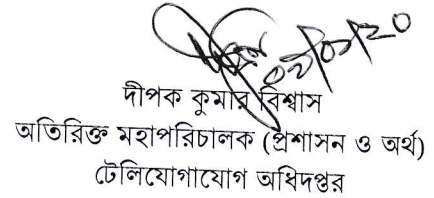 দীপক কুমার বিশ্বাস
অতিরিক্ত মহাপরিচালক (প্রশাসন ও অর্থ)
টেলিযোগাযোগ অধিদপ্তর